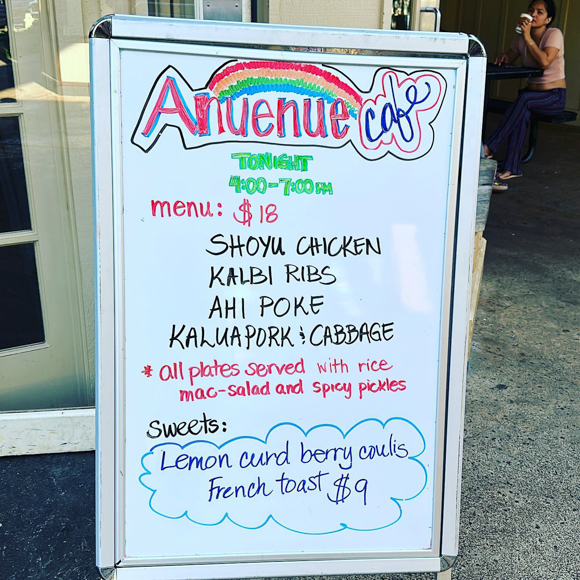 Anuenue cafe
TONIGHT
4:00-7:00 PM
menu: $18
SHOYU CHICKEN
KALBI RIBS
AHI POKE
KALUA PORK & CABBAGE
* all plates served with rice
mac-salad and spicy pickles
Sweets:
Lemon curd berry coulis
French toast $9